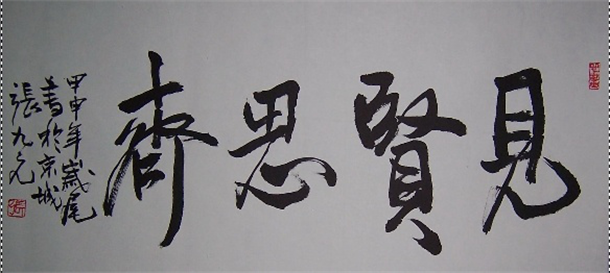 見賢思齊
甲申年歲尾
書於京城
張九元